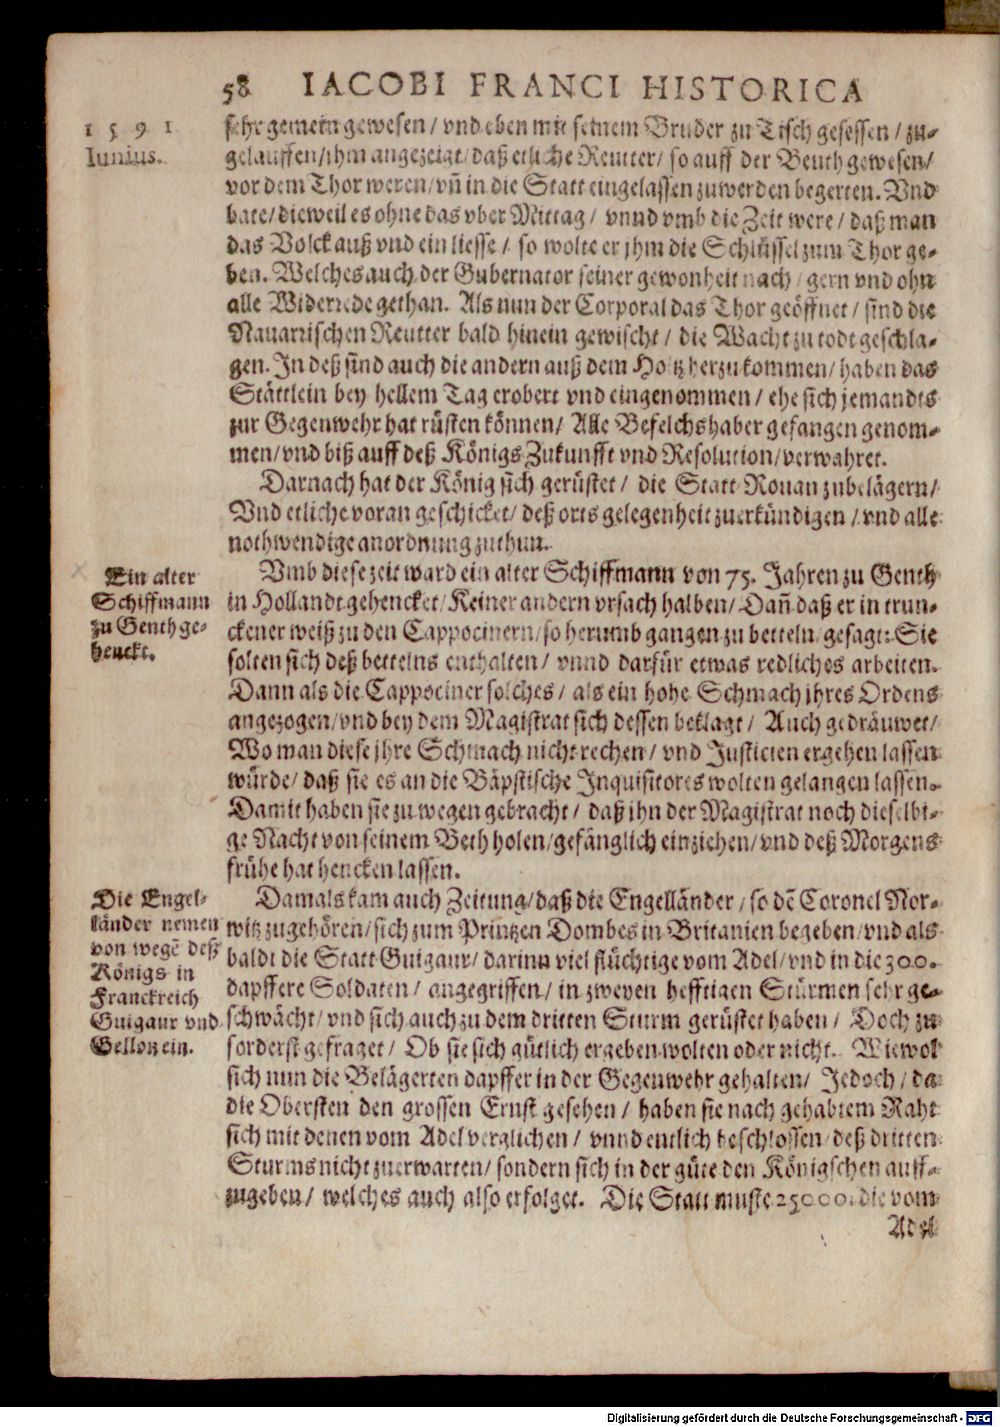 58 IACOBI FRANCI HISTORICA
1591
Iunius.
sehr gemein gewesen / vnd eben mit seinem Bruder zu Tisch gesessen / zu-
gelauffen / ihm angezeigt / daß etliche Reutter / so auff der Beuth gewesen /
vor dem Thor weren / vñ in die Statt eingelassen zuwerden begerten. Vnd
bate / dieweil es ohne das vber Mittag / vnnd vmb die Zeit were / daß man
das Volck auß vnd ein liesse / so wolte er jhm die Schlüssel zum Thor ge-
ben. Welches auch der Gubernator seiner gewonheit nach / gern vnd ohn
alle Widerrede gethan. Als nun der Corporal das Thor geöffnet / sind die
Nauarrischen Reutter bald hinein gewischt / die Wacht zu todt geschla-
gen. In deß sind auch die andern auß dem Holtz herzu kommen / haben das
Stättlein bey hellem Tag erobert vnd eingenommen / ehe sich jemandts
zur Gegenwehr hat rüsten können / Alle Befelchshaber gefangen genom-
men / vnd biß auff deß Königs Zukunfft vnd Resolution / verwahret.
Darnach hat der König sich gerüstet / die Statt Rouan zubelägern /
Vnd etliche voran geschicket / deß orts gelegenheit zuerkündigen / vnd alle
nothwendige anordnung zuthun.
Ein alter
Schiffmann
zu Genth ge-
henckt.
Vmb diese zeit ward ein alter Schiffmann von 75. Jahren zu Genth
in Hollandt gehencket / Keiner andern vrsach halben / Dañ daß er in trun-
ckener weiß zu den Cappocinern / so herumb gangen zu betteln / gesagt: Sie
solten sich deß bettelns enthalten / vnnd darfür etwas redliches arbeiten.
Dann als die Cappociner solches / als ein hohe Schmach jhres Ordens
angezogen / vnd bey dem Magistrat sich dessen beklagt / Auch gedräuwet /
Wo man diese jhre Schmach nicht rechen / vnd Justicien ergehen lassen
würde / daß sie es an die Bäpstische Inquisitores wolten gelangen lassen.
Damit haben sie zu wegen gebracht / daß ihn der Magistrat noch dieselbi-
ge Nacht von seinem Beth holen / gefänglich einziehen / vnd deß Morgens
frühe hat hencken lassen.
Die Engel-
länder nemen
von wegē deß
Königs in
Franckreich
Guigaur vnd
Gellon ein.
Damals kam auch Zeitung / daß die Engelländer / so dē Coronel Nor-
witz zugehören / sich zum Printzen Dombes in Britanien begeben / vnd als
baldt die Statt Guigaur / darinn viel flüchtige vom Adel / vnd in die 300.
dapffere Soldaten / angegriffen / in zweyen hefftigen Stürmen sehr ge-
schwächt / vnd sich auch zu dem dritten Sturm gerüstet haben / Doch zu
forderst gefraget / Ob sie sich gütlich ergeben wolten oder nicht. Wiewol
sich nun die Belägerten dapffer in der Gegenwehr gehalten / Jedoch / da
die Obersten den grossen Ernst gesehen / haben sie nach gehabtem Raht
sich mit denen vom Adel verglichen / vnnd entlich beschlossen / deß dritten
Sturms nicht zuerwarten / sondern sich in der güte den Königschen auff-
zugeben / welches auch also erfolget. Die Statt muste 25000. die vom
Adel
Digitalisierung gefördert durch die Deutsche Forschungsgemeinschaft - DFG